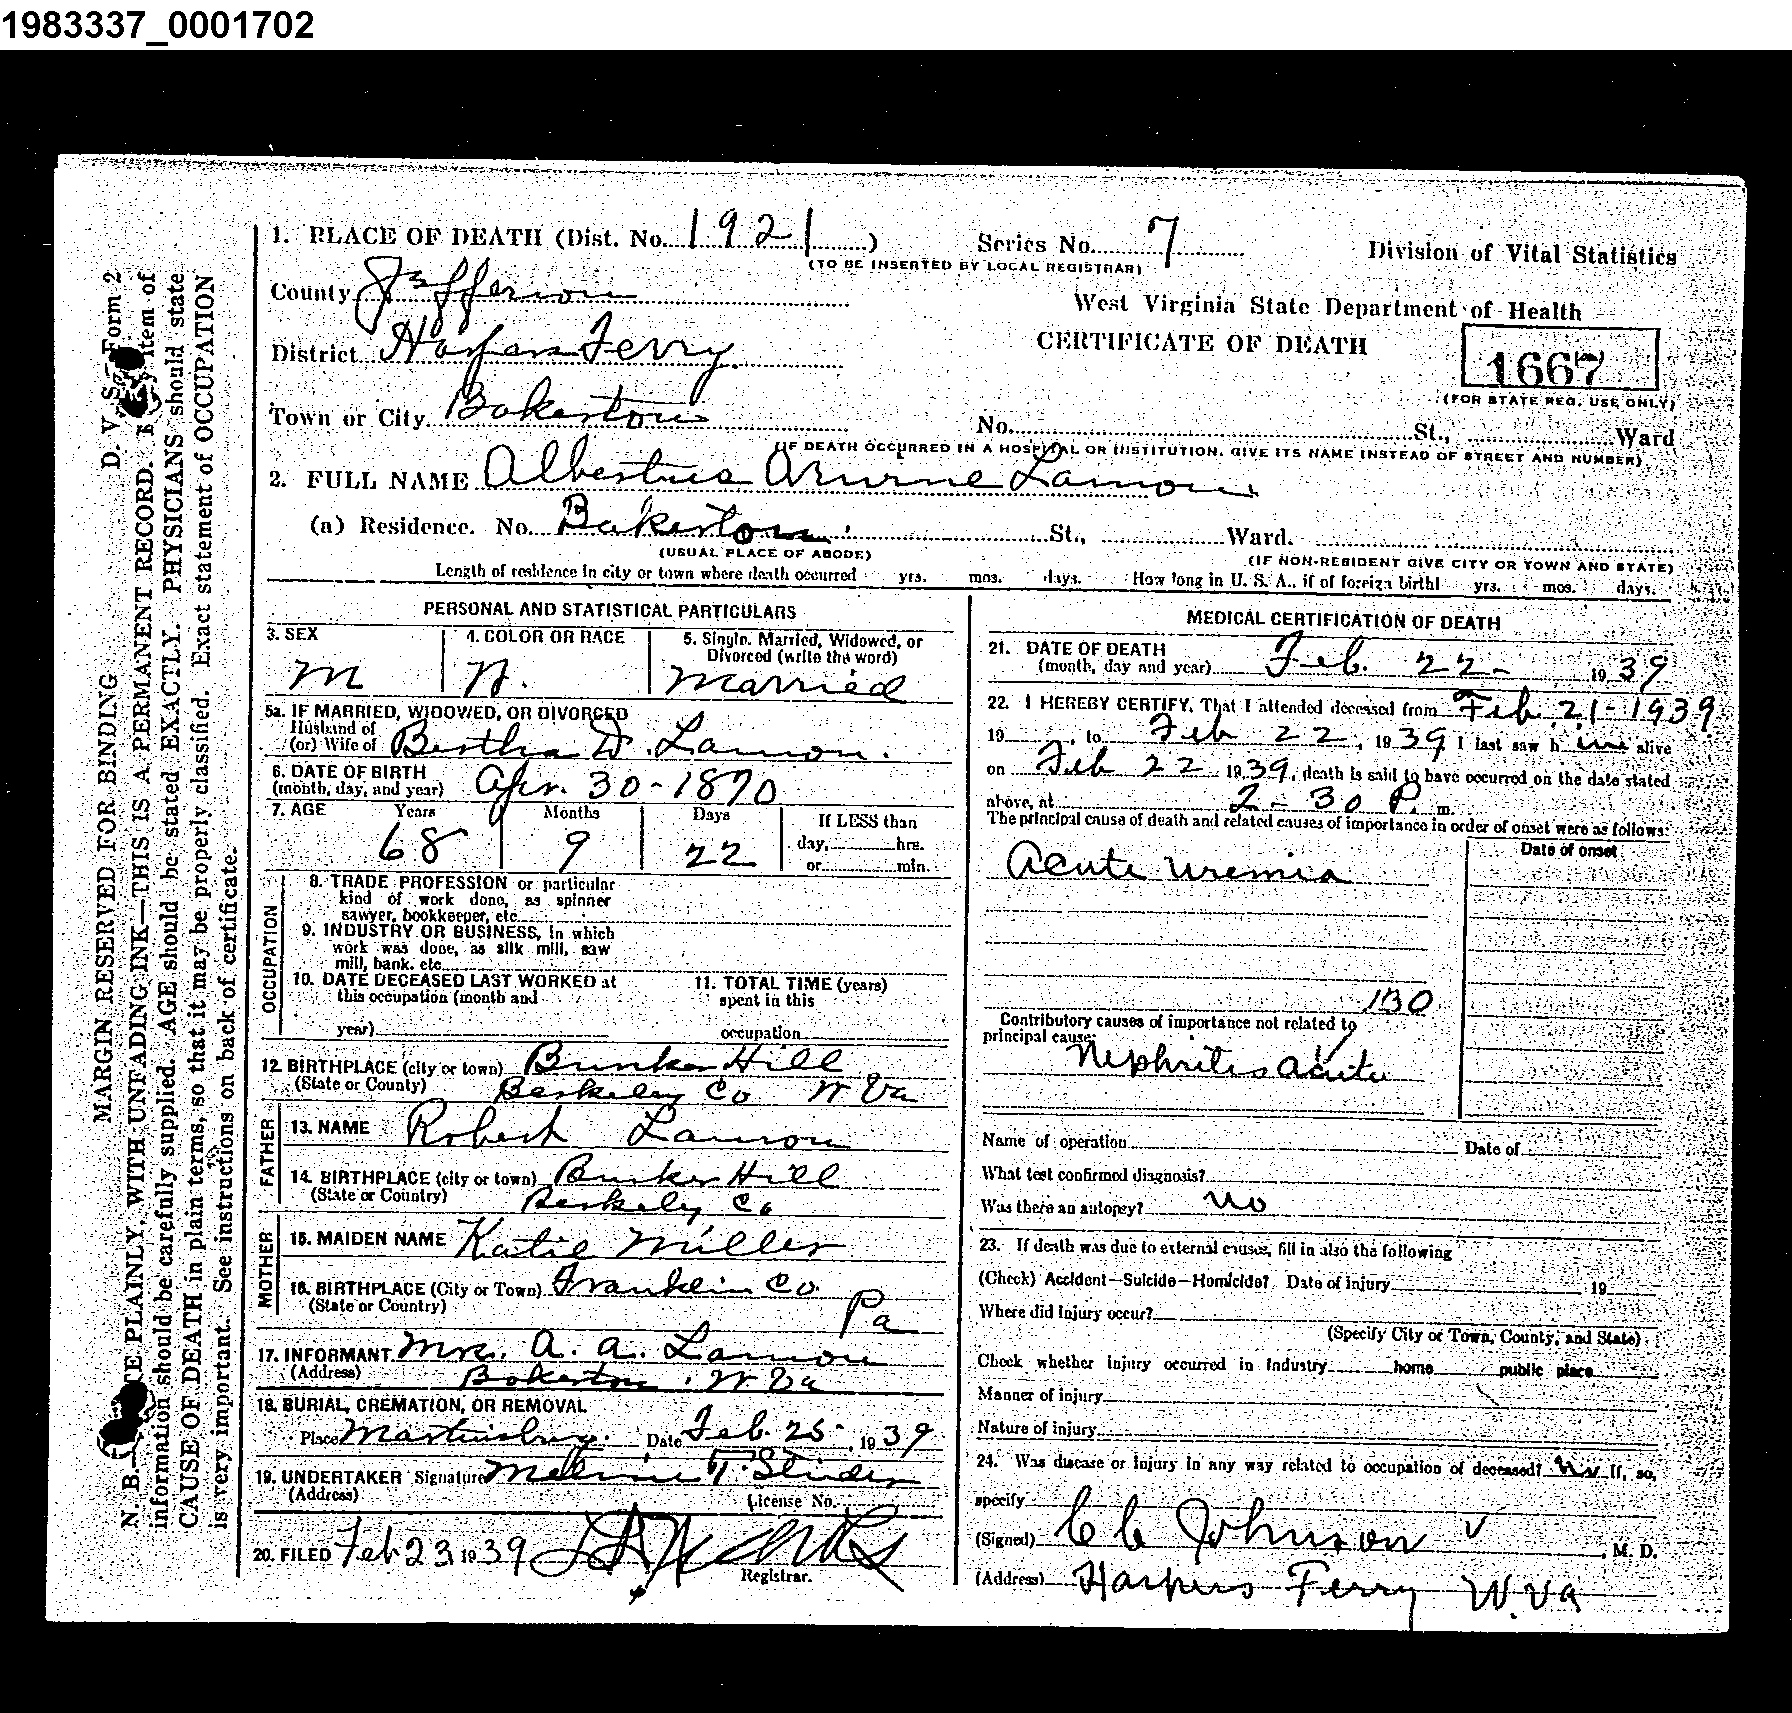 1983337_0001702
1. PLACE OF DEATH (Dist. No. 1921 ) Series No. 7 Division of Vital Statistics
(TO BE INSERTED BY LOCAL REGISTRAR)
County Jefferson West Virginia State Department of Health
District Harpers Ferry. CERTIFICATE OF DEATH
1667
(FOR STATE REG. USE ONLY)
Town or City Bakerton No. St., Ward
(IF DEATH OCCURRED IN A HOSPITAL OR INSTITUTION, GIVE ITS NAME INSTEAD OF STREET AND NUMBER)
2. FULL NAME Albertus Lamon
(a) Residence. No. Bakerton St., Ward.
(USUAL PLACE OF ABODE) (IF NON-RESIDENT GIVE CITY OR TOWN AND STATE)
Length of residence in city or town where death occurred yrs. mos. days. How long in U. S. A., if of foreign birth! yrs. mos. days.
PERSONAL AND STATISTICAL PARTICULARS
3. SEX 4. COLOR OR RACE 5. Single, Married, Widowed, or
Divorced (write the word)
M W. Married
5a. IF MARRIED, WIDOWED, OR DIVORCED
Husband of
(or) Wife of Bertha D. Lamon.
6. DATE OF BIRTH
(month, day, and year) Apr. 30-1870
7. AGE Years Months Days If LESS than
68 9 22 day, hrs.
or min.
OCCUPATION
8. TRADE PROFESSION or particular
kind of work done, as spinner
sawyer, bookkeeper, etc
9. INDUSTRY OR BUSINESS, in which
work was done, as silk mill, saw
mill, bank, etc.
10. DATE DECEASED LAST WORKED at 11. TOTAL TIME (years)
this occupation (month and spent in this
year) occupation
12. BIRTHPLACE (city or town) Bunker Hill
(State or County) Berkeley Co W Va
FATHER
13. NAME Robert Lamon
14. BIRTHPLACE (city or town) Bunker Hill
(State or Country) Berkeley Co
MOTHER
15. MAIDEN NAME Katie Miller
16. BIRTHPLACE (City or Town) Franklin Co.
(State or Country) Pa
17. INFORMANT Mrs. A. A. Lamon
(Address) Bakerton, W Va
18. BURIAL, CREMATION, OR REMOVAL
Place Martinsburg. Date Feb. 25- 1939
19. UNDERTAKER Signature Melvin T. Strider
(Address) License No.
20. FILED Feb 23 1939
Registrar.
MEDICAL CERTIFICATION OF DEATH
21. DATE OF DEATH
(month, day and year) Feb. 22- 1939
22. I HEREBY CERTIFY, That I attended deceased from Feb 21-1939
19 , to Feb 22, 1939, I last saw h im alive
on Feb 22 1939, death is said to have occurred on the date stated
above, at 2-30 P. m.
The principal cause of death and related causes of importance in order of onset were as follows:
Date of onset
Acute uremia
130
Contributory causes of importance not related to
principal cause:
Nephritis acute
Name of operation Date of
What test confirmed diagnosis?
Was there an autopsy? No
23. If death was due to external causes, fill in also the following
(Check) Accident—Suicide—Homicide? Date of injury 19
Where did injury occur?
(Specify City or Town, County, and State)
Check whether injury occurred in industry home public place
Manner of injury
Nature of injury
24. Was disease or injury in any way related to occupation of deceased? No If, so,
specify
(Signed) C C Johnson , M. D.
(Address) Harpers Ferry W. Va
D. V. S. Form 2
MARGIN RESERVED FOR BINDING
N. B.— PLAINLY, WITH UNFADING INK—THIS IS A PERMANENT RECORD. item of
information should be carefully supplied. AGE should be stated EXACTLY. PHYSICIANS should state
CAUSE OF DEATH in plain terms, so that it may be properly classified. Exact statement of OCCUPATION
is very important. See instructions on back of certificate.